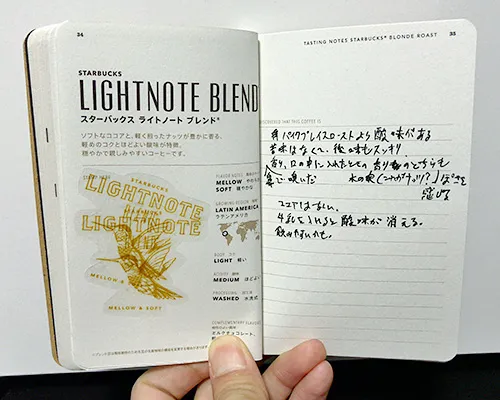 34
STARBUCKS
LIGHTNOTE BLEND
スターバックス ライトノート ブレンド®
ソフトなココアと、軽く煎ったナッツが豊かに香る、
軽めのコクとほどよい酸味が特徴。
穏やかで親しみやすいコーヒーです。
STARBUCKS
LIGHTNOTE
LIGHTNOTE
MELLOW &
MELLOW & SOFT
FLAVOR NOTES
MELLOW
SOFT 穏やかな
GROWING REGION
LATIN AMERICA
ラテンアメリカ
BODY コク
LIGHT 軽い
ACIDITY 酸味
MEDIUM ほどよい
PROCESSING 加工法
WASHED 水洗式
COMPLEMENTARY FLAVORS
ミルクチョコレート、
TASTING NOTES STARBUCKS® BLONDE ROAST
35
DISCOVERED THAT THIS COFFEE IS
パイクプレイスローストより酸味がある
苦味はなくて、後味もスッキリ
香り、口の中に入れたときの香りのどちらも
木の実(これがナッツ!?)ぽさを
感じる
ココアはない。
牛乳を入れると酸味が消える。
飲みやすいかも。